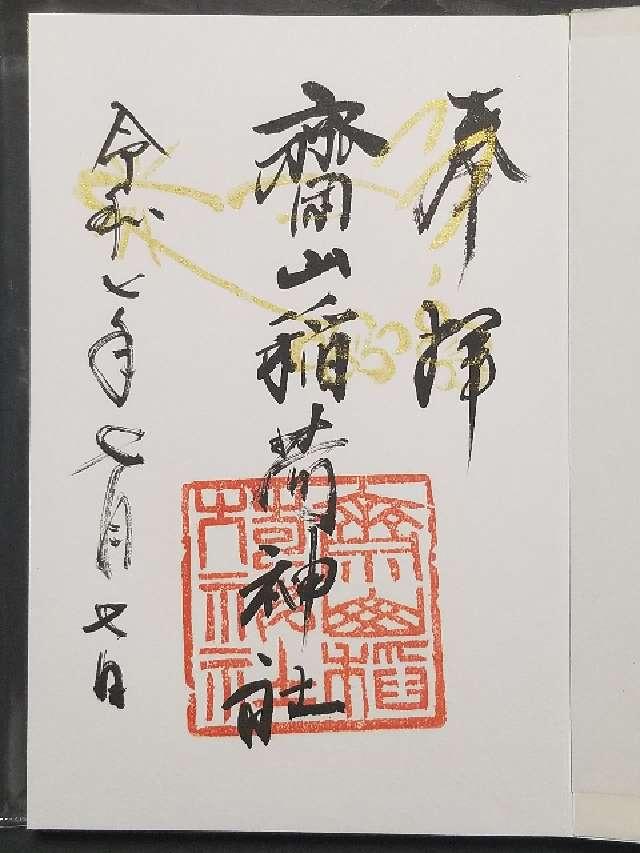 奉拝
齋山稲荷神社
令和七年七月七日